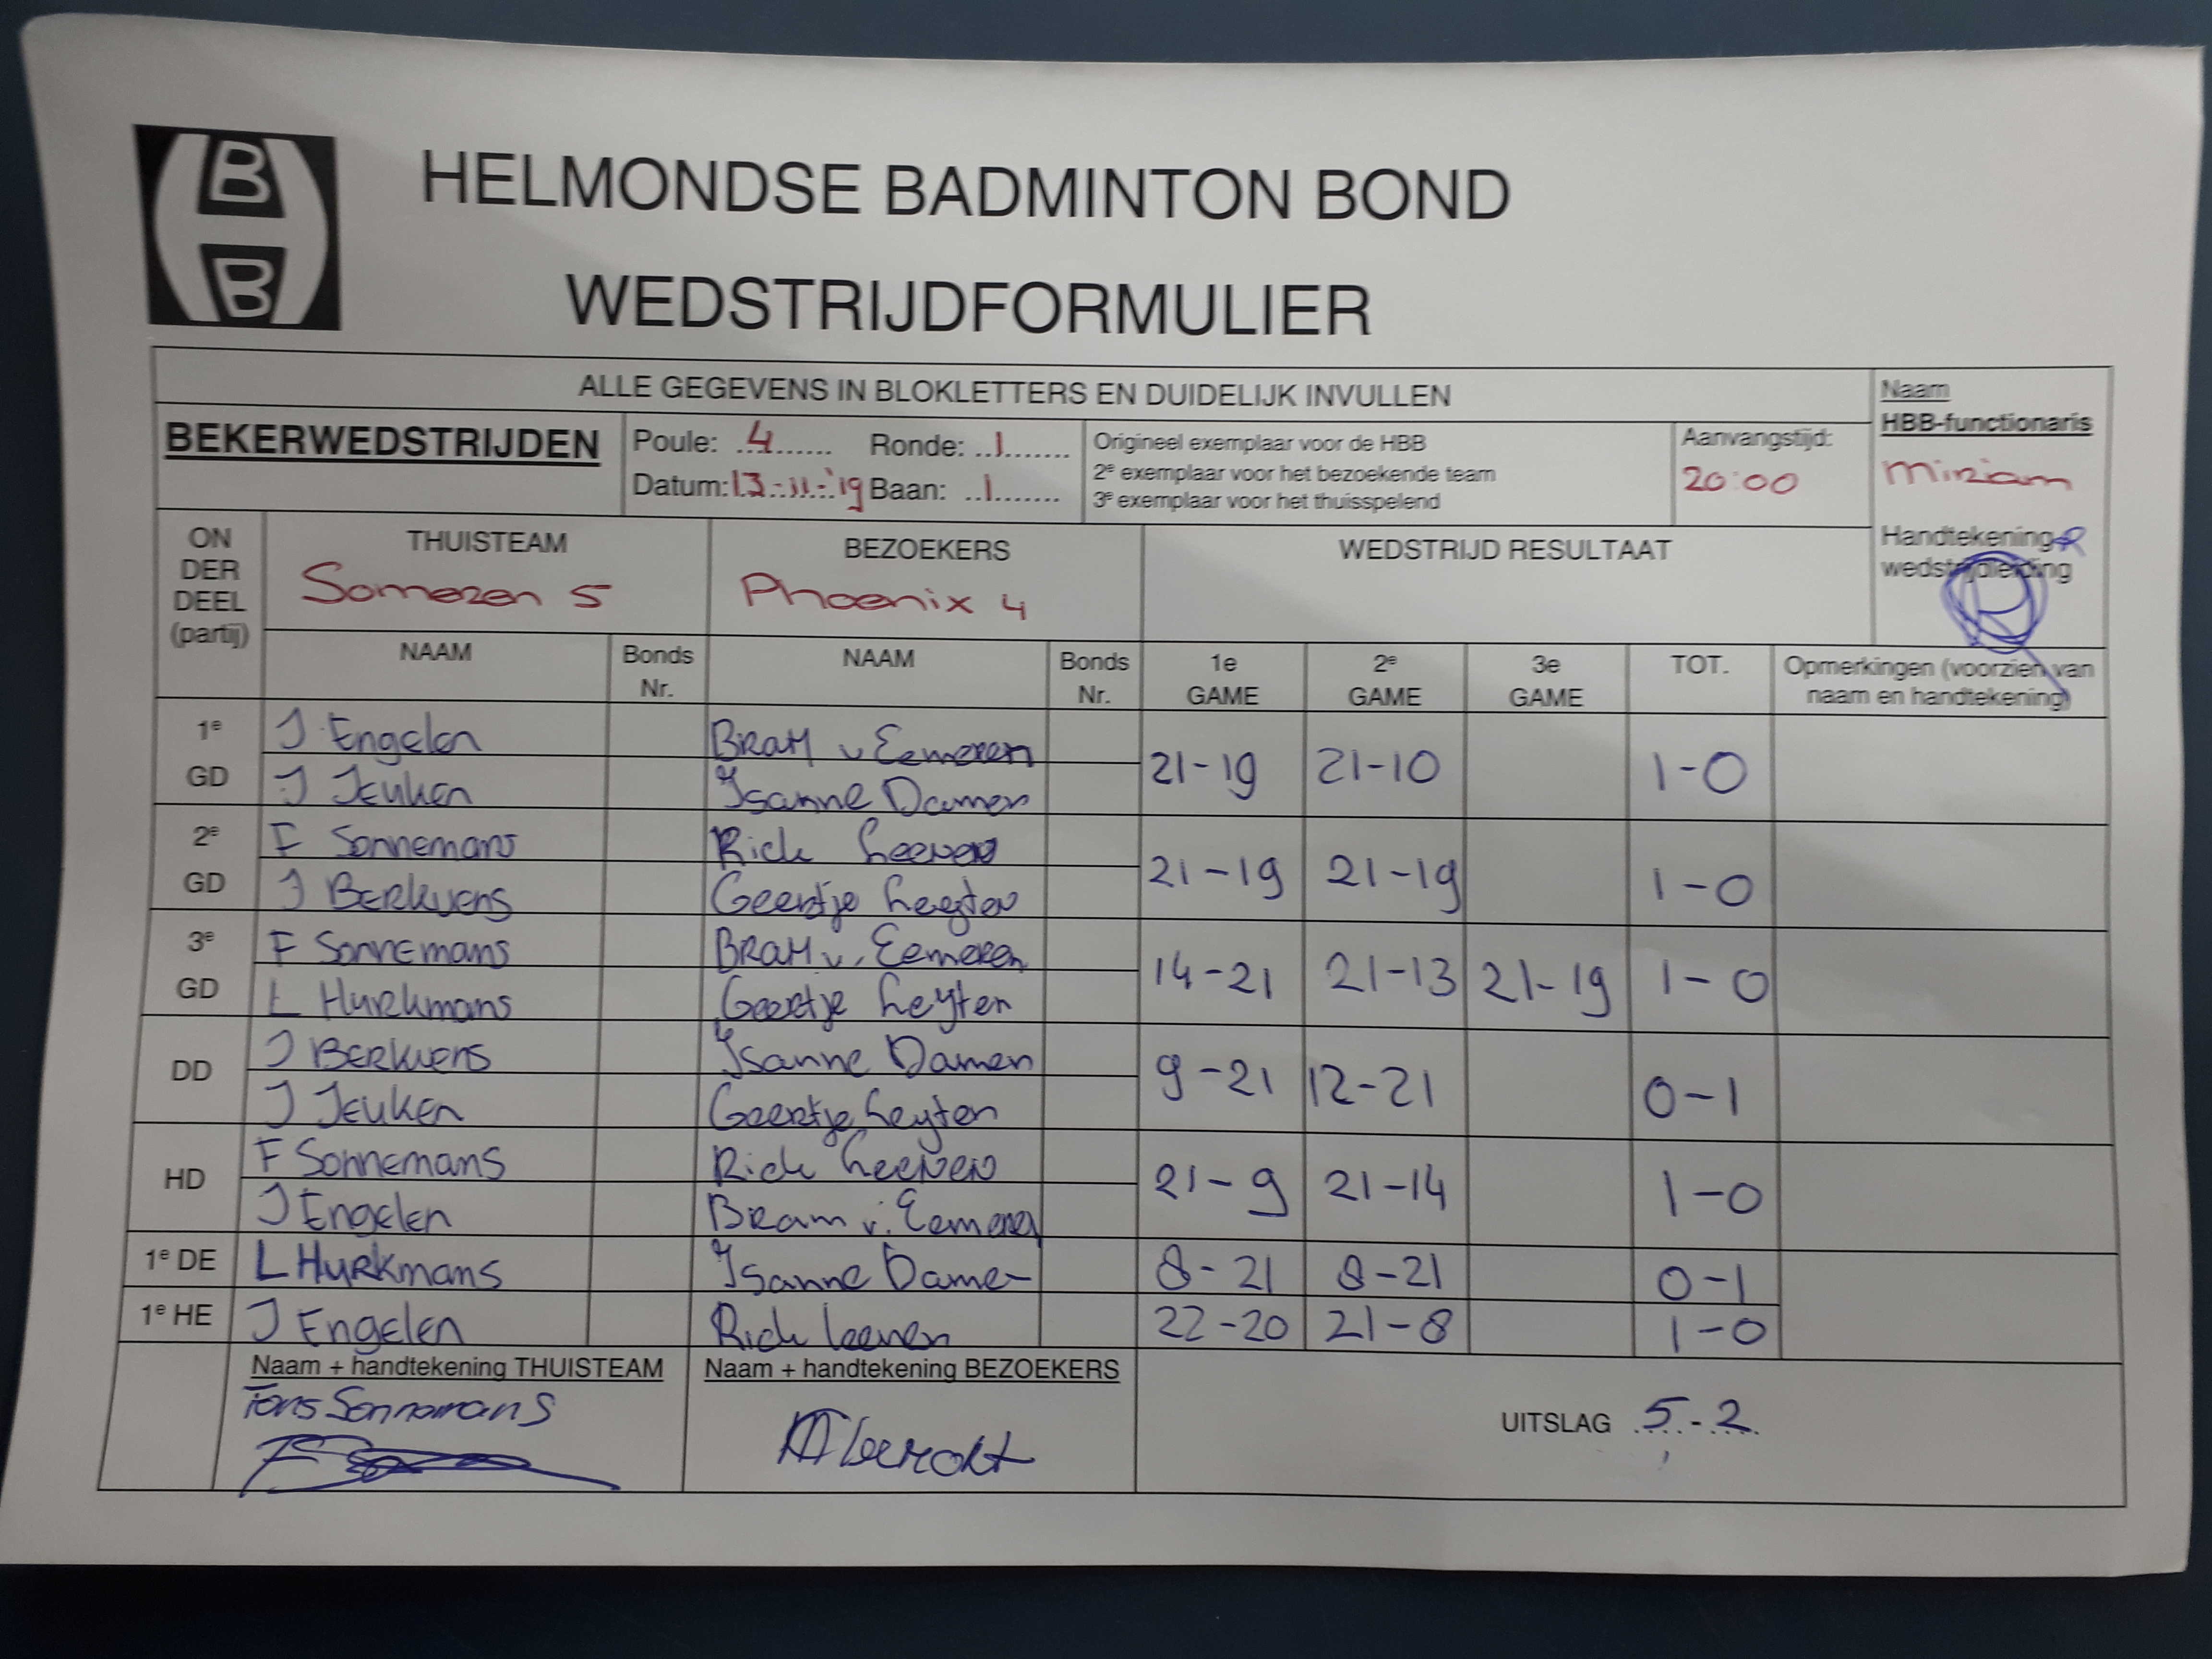 B
B
HELMONDSE BADMINTON BOND
WEDSTRIJDFORMULIER
ALLE GEGEVENS IN BLOKLETTERS EN DUIDELIJK INVULLEN
Naam
HBB-functionaris
Miriam
BEKERWEDSTRIJDEN
Poule: 4 Ronde: 1
Datum: 13-11-'19 Baan: 1
Origineel exemplaar voor de HBB
2e exemplaar voor het bezoekende team
3e exemplaar voor het thuisspelend
Aanvangstijd:
20:00
Handtekening
wedstrijdleiding
ON
DER
DEEL
(partij)
THUISTEAM
Someren 5
BEZOEKERS
Phoenix 4
WEDSTRIJD RESULTAAT
NAAM Bonds Nr. NAAM Bonds Nr. 1e GAME 2e GAME 3e GAME TOT. Opmerkingen (voorzien van naam en handtekening)
1e J Engelen Bram v Eemeren
GD J Jeuken Ysanne Damen 21-19 21-10 1-0
2e F Sonnemans Rick Leenen
GD J Berkvens Geertje Leyten 21-19 21-19 1-0
3e F Sonnemans Bram v. Eemeren
GD L Hurkmans Geertje Leyten 14-21 21-13 21-19 1-0
DD J Berkvens Ysanne Damen
J Jeuken Geertje Leyten 9-21 12-21 0-1
HD F Sonnemans Rick Leenen
J Engelen Bram v. Eemeren 21-9 21-14 1-0
1e DE L Hurkmans Ysanne Damen 8-21 8-21 0-1
1e HE J Engelen Rick Leenen 22-20 21-8 1-0
Naam + handtekening THUISTEAM
Naam + handtekening BEZOEKERS
Fons Sonnemans
UITSLAG 5-2